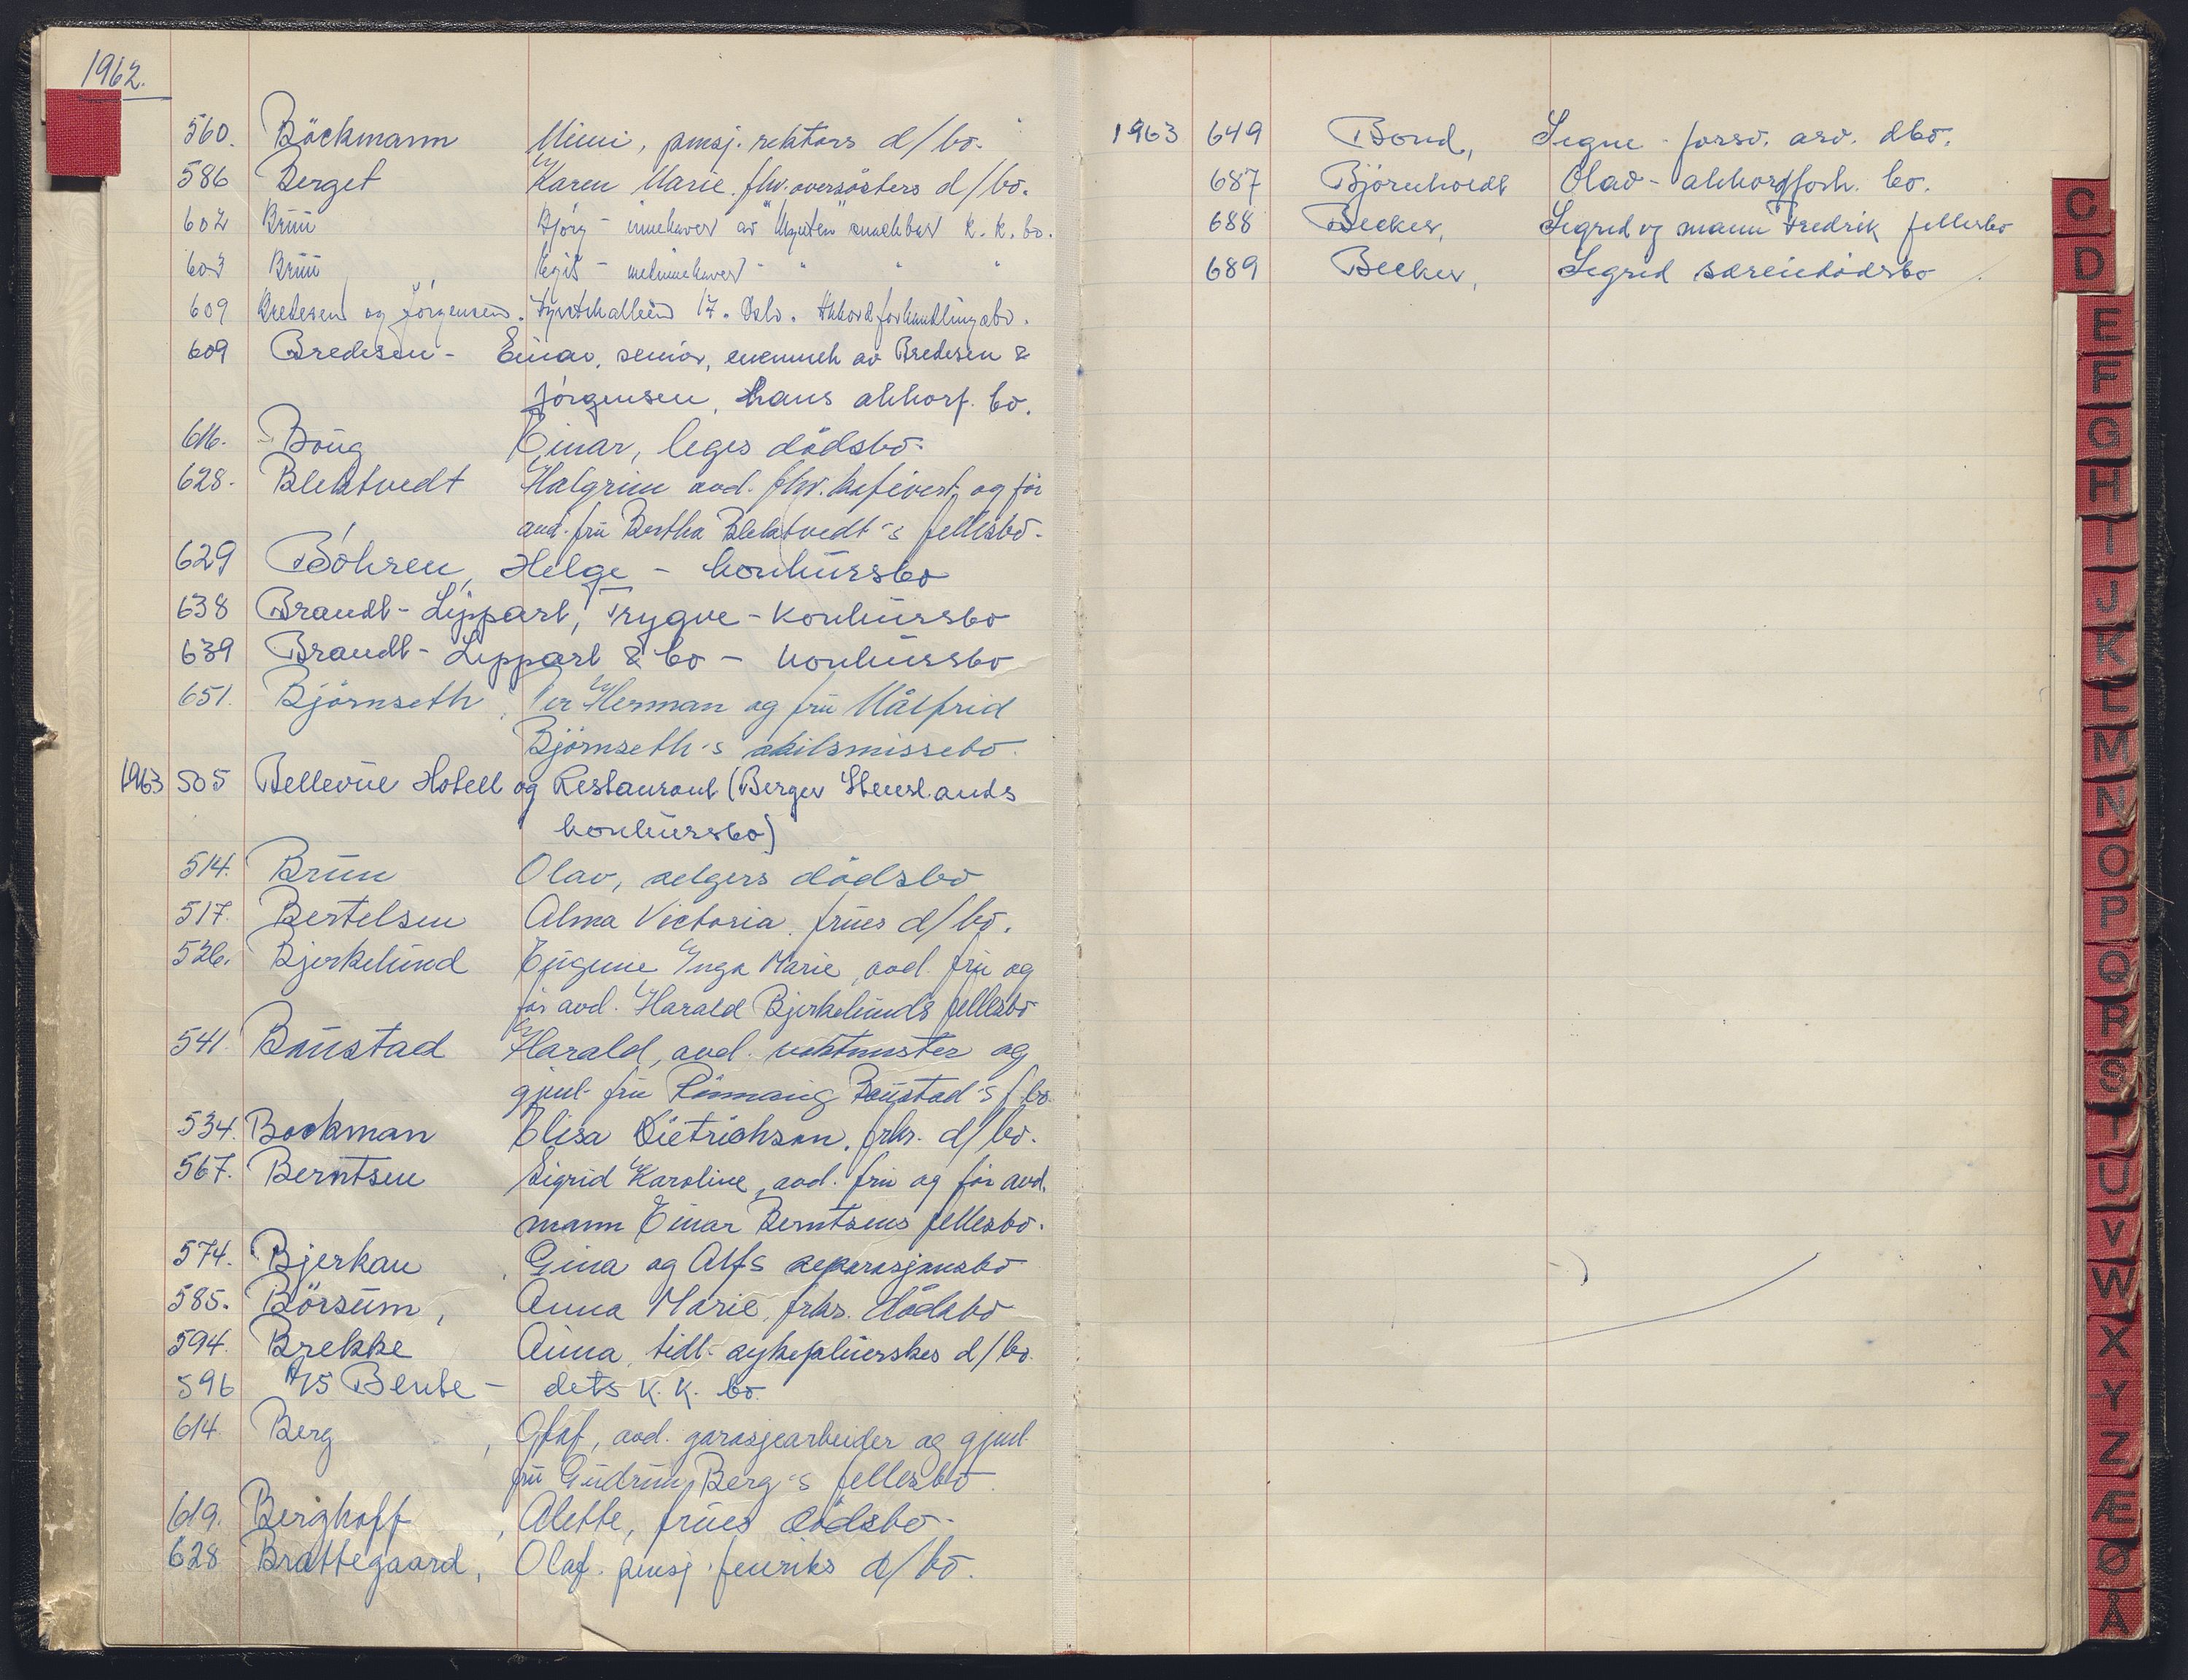 1962.
560. Böckmann Mimi, pensj. rektors d/bo.
586 Berget Karen Marie fhv. oversösters d/bo.
602 Brun Bjørg - innehaver av K.K. bo.
603 Brun - medinnehaver - " " "
609 Bredesen og Jörgensen. 17. Oslo. Akkordforhandlingsbo.
609 Bredesen - Einar, senior, enemneh av Bredesen &
Jörgensen, hans akkorf. bo.
616. Boug Einar, leges dödsbo.
628. Blektvedt Halgrim avd. fhv. kafévert og för
avd. fru Bertha Blektvedt's fellesbo.
629 Böhren, Helge - konkursbo
638 Brandt-Lippart, Trygve - konkursbo
639 Brandt-Lippart & Co - konkursbo
651. Björnseth, Per Herman og fru Målfrid
Björnseth's skilsmissebo.
1963 505 Bellevue Hotell og Restaurant (Berger Stenslands
konkursbo)
514. Brun Olav, selgers dödsbo
517. Bertelsen Alma Victoria, frues d/bo.
526. Bjerkelund Eugenie Inga Marie, avd. fru og
för avd. Harald Bjerkelunds fellesbo
541. Baustad Harald, avd. vaktmester og
gjenl. fru Rönnaug Baustad's f.bo.
534. Bockman Elisa Dietrichson, frkr. d/bo.
567. Berntsen Sigrid Karoline, avd. fru og för avd.
mann Einar Berntsens fellesbo.
574. Bjerkau, Gina og Alfs separasjonsbo
585. Börsum, Anna Marie, frks. dödsbo
594. Brekke Anna, tidl. sykepleierskes d/bo.
596 A/S Bente - dets K.K. bo.
614 Berg, Olaf, avd. garasjearbeider og gjenl.
fru Gudrun Berg's fellesbo
619. Berghoff, Alette, frues dödsbo.
628 Brattegaard, Olaf. pensj. fenriks d/bo.
1963 649 Bond, Signe - forsv. arv. dbo.
687 Björnholdt Olav - akkordforh. bo.
688 Becker, Sigrid og mann Fredrik fellesbo
689 Becker, Sigrid særeiedödsbo
C
D
E
F
G
H
I
J
K
L
M
N
O
P
Q
R
S
T
U
V
W
X
Y
Z
Æ
Ø
Å